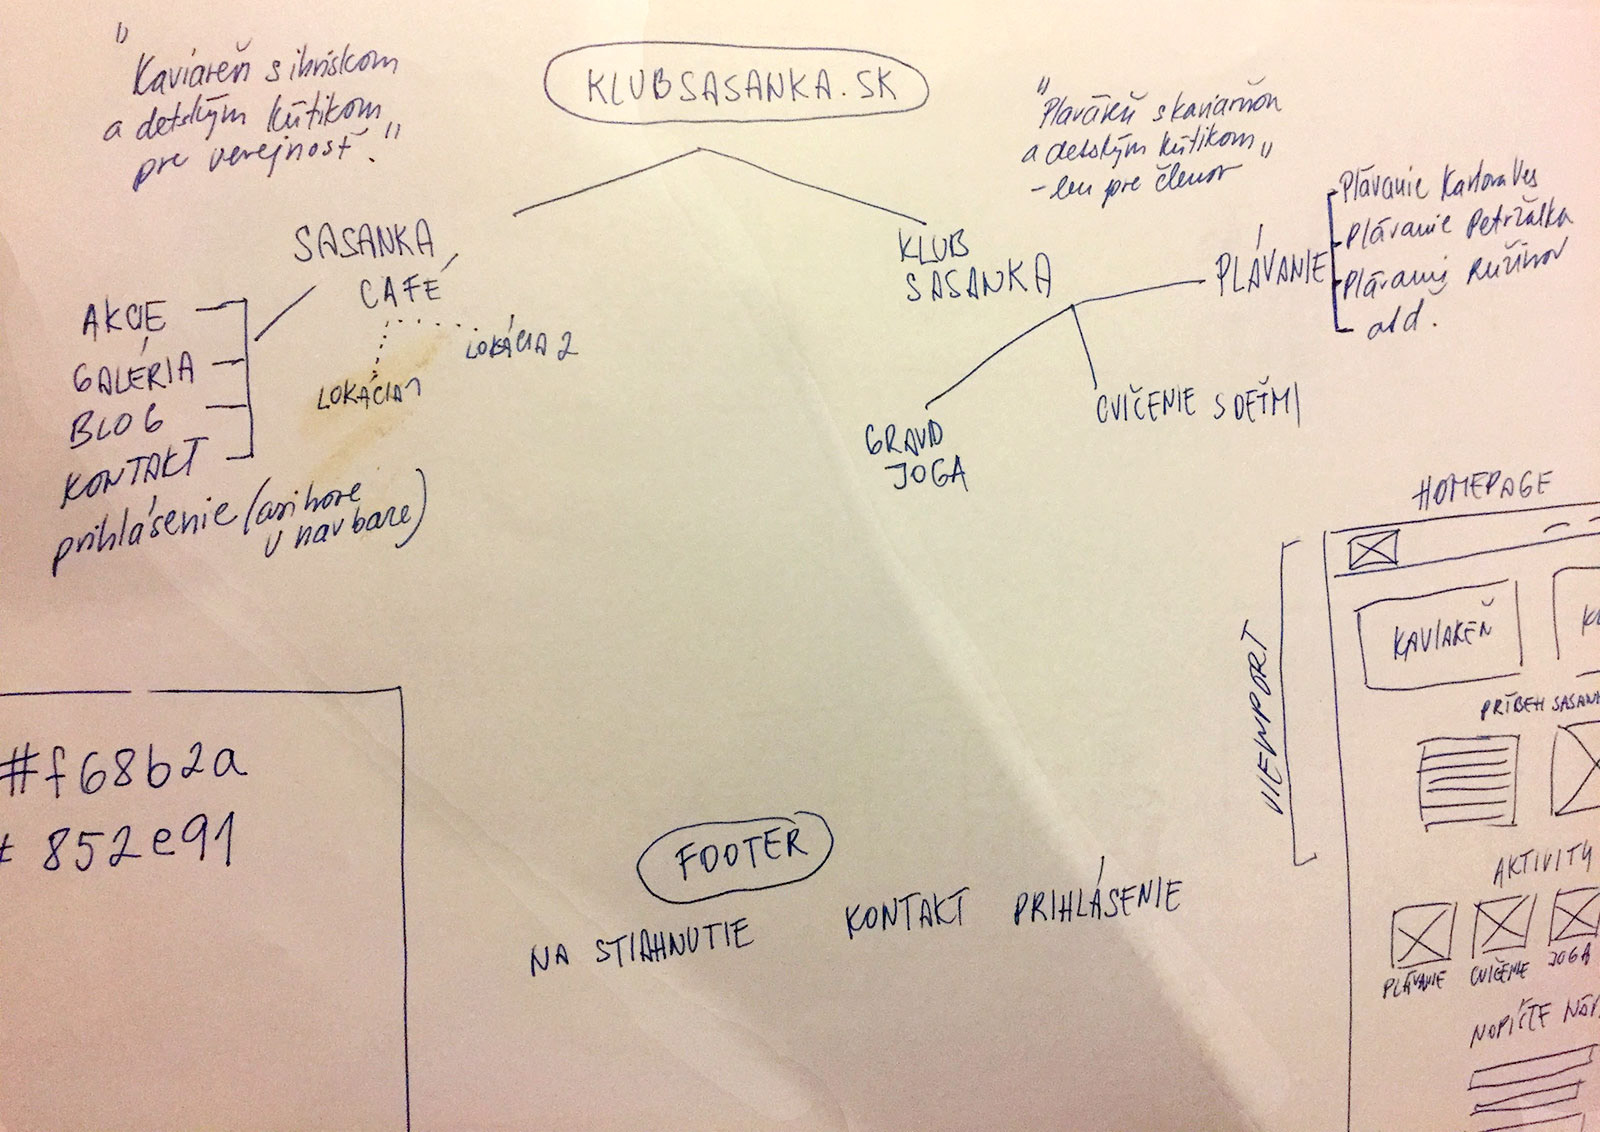 KLUBSASANKA.SK
"Kaviareň s ihriskom
a detským kútikom
pre verejnosť."
"Plaváreň s kaviarňou
a detským kútikom"
- len pre členov
SASANKA
CAFÉ
LOKÁCIA 1
LOKÁCIA 2
AKCIE
GALÉRIA
BLOG
KONTAKT
prihlásenie (asi hore
v navbare)
KLUB
SASANKA
PLÁVANIE
Plávanie Karlova Ves
Plávanie Petržalka
Plávanie Ružinov
atď.
GRAVID
JOGA
CVIČENIE S DEŤMI
#f68b2a
# 852e91
FOOTER
NA STIAHNUTIE
KONTAKT
PRIHLÁSENIE
HOMEPAGE
VIEWPORT
KAVIAREŇ
PRÍBEH
AKTIVITY
PLÁVANIE
CVIČENIE
JOGA